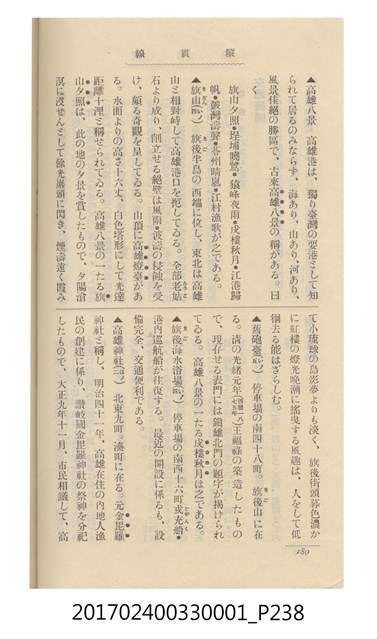 線貫縱
▲高雄八景　高雄港は、獨り臺灣の要港として知
られて居るのみならず、海あり、山あり、河あり、
風景佳絶の勝區で、古來高雄八景の稱がある。曰
く
旗山夕照・埕埔曉鶯・猿峰夜雨・戍樓秋月・江港歸
帆・鼓灣濤聲・苓州晴嵐・江村漁歌が之である。
▲旗山 旗後半島の西端に位し、東北は高雄
山と相對峙して高雄港口を扼してゐる。全部老姑
石より成り、削立せる絶壁は風雨・波濤の侵蝕を受
け、頗る奇觀を呈してゐる。山頂に高雄燈臺があ
る。水面よりの高さ十六丈、白色塔形にして光達
距離十浬と稱せられてゐる。高雄八景の一たる旗
山夕照は、此の地の夕景を賞したもので、夕陽滄
溟に沒せんとして餘光巖頭に閃き、煙濤遠く霞み
て小琉球の島影夢よりも淡く、旗後街頭暮色濃か
に紅樓の燈光晩潮に搖曳する風趣は、人をして低
徊去る能はざらしむ。
▲舊砲臺 停車場の南四十八町。旗後山に在
る。清の光緒元年 王福祿の築造したもの
で、現在せる表門には鎭雄北門の題字が掲げられ
てゐる。高雄八景の一たる戍樓秋月は之である。
▲旗後海水浴場 停車場の南西十六町或充船・
港内巡航船が往復する。最近の開設に係るも、設
備完全、交通便利である。
▲高雄神社 北東九町。湊町に在る。元金毘羅
神社と稱し、明治四十一年、高雄在住の内地人漁
民の創建に係り、讚岐國金毘羅神社の祭神を分祀
したもので、大正九年十一月、市民相議して、高
189
201702400330001_P238